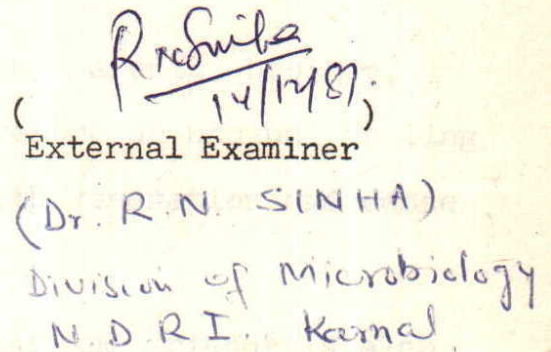 RNSinha
14/12/87.
( )
External Examiner
(Dr. R.N. SINHA)
Division of Microbiology
N D R I. Karnal.